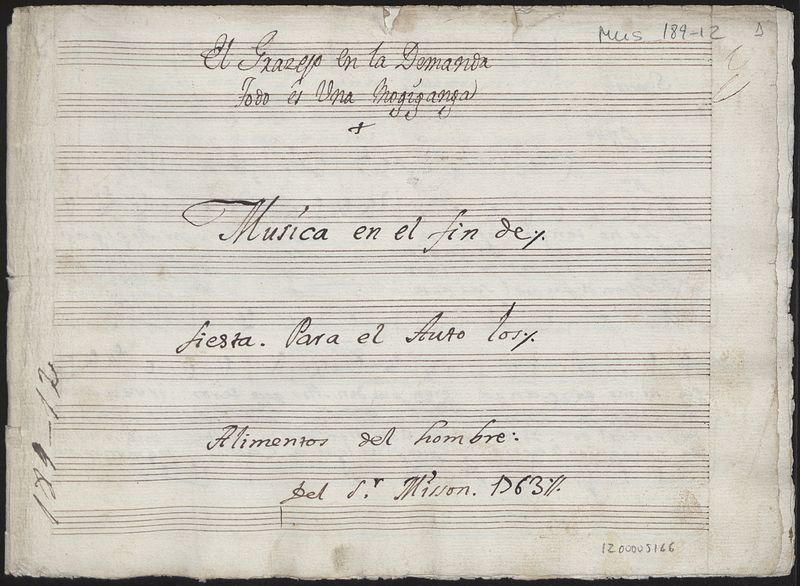 Mus 189-12
D
El Grazejo en la Demanda
Todo es Una Mogiganga
Musica en el fin de
fiesta. Para el Auto los
Alimentos del hombre:
Del S.r Misson. 1763
189-12
1200005166